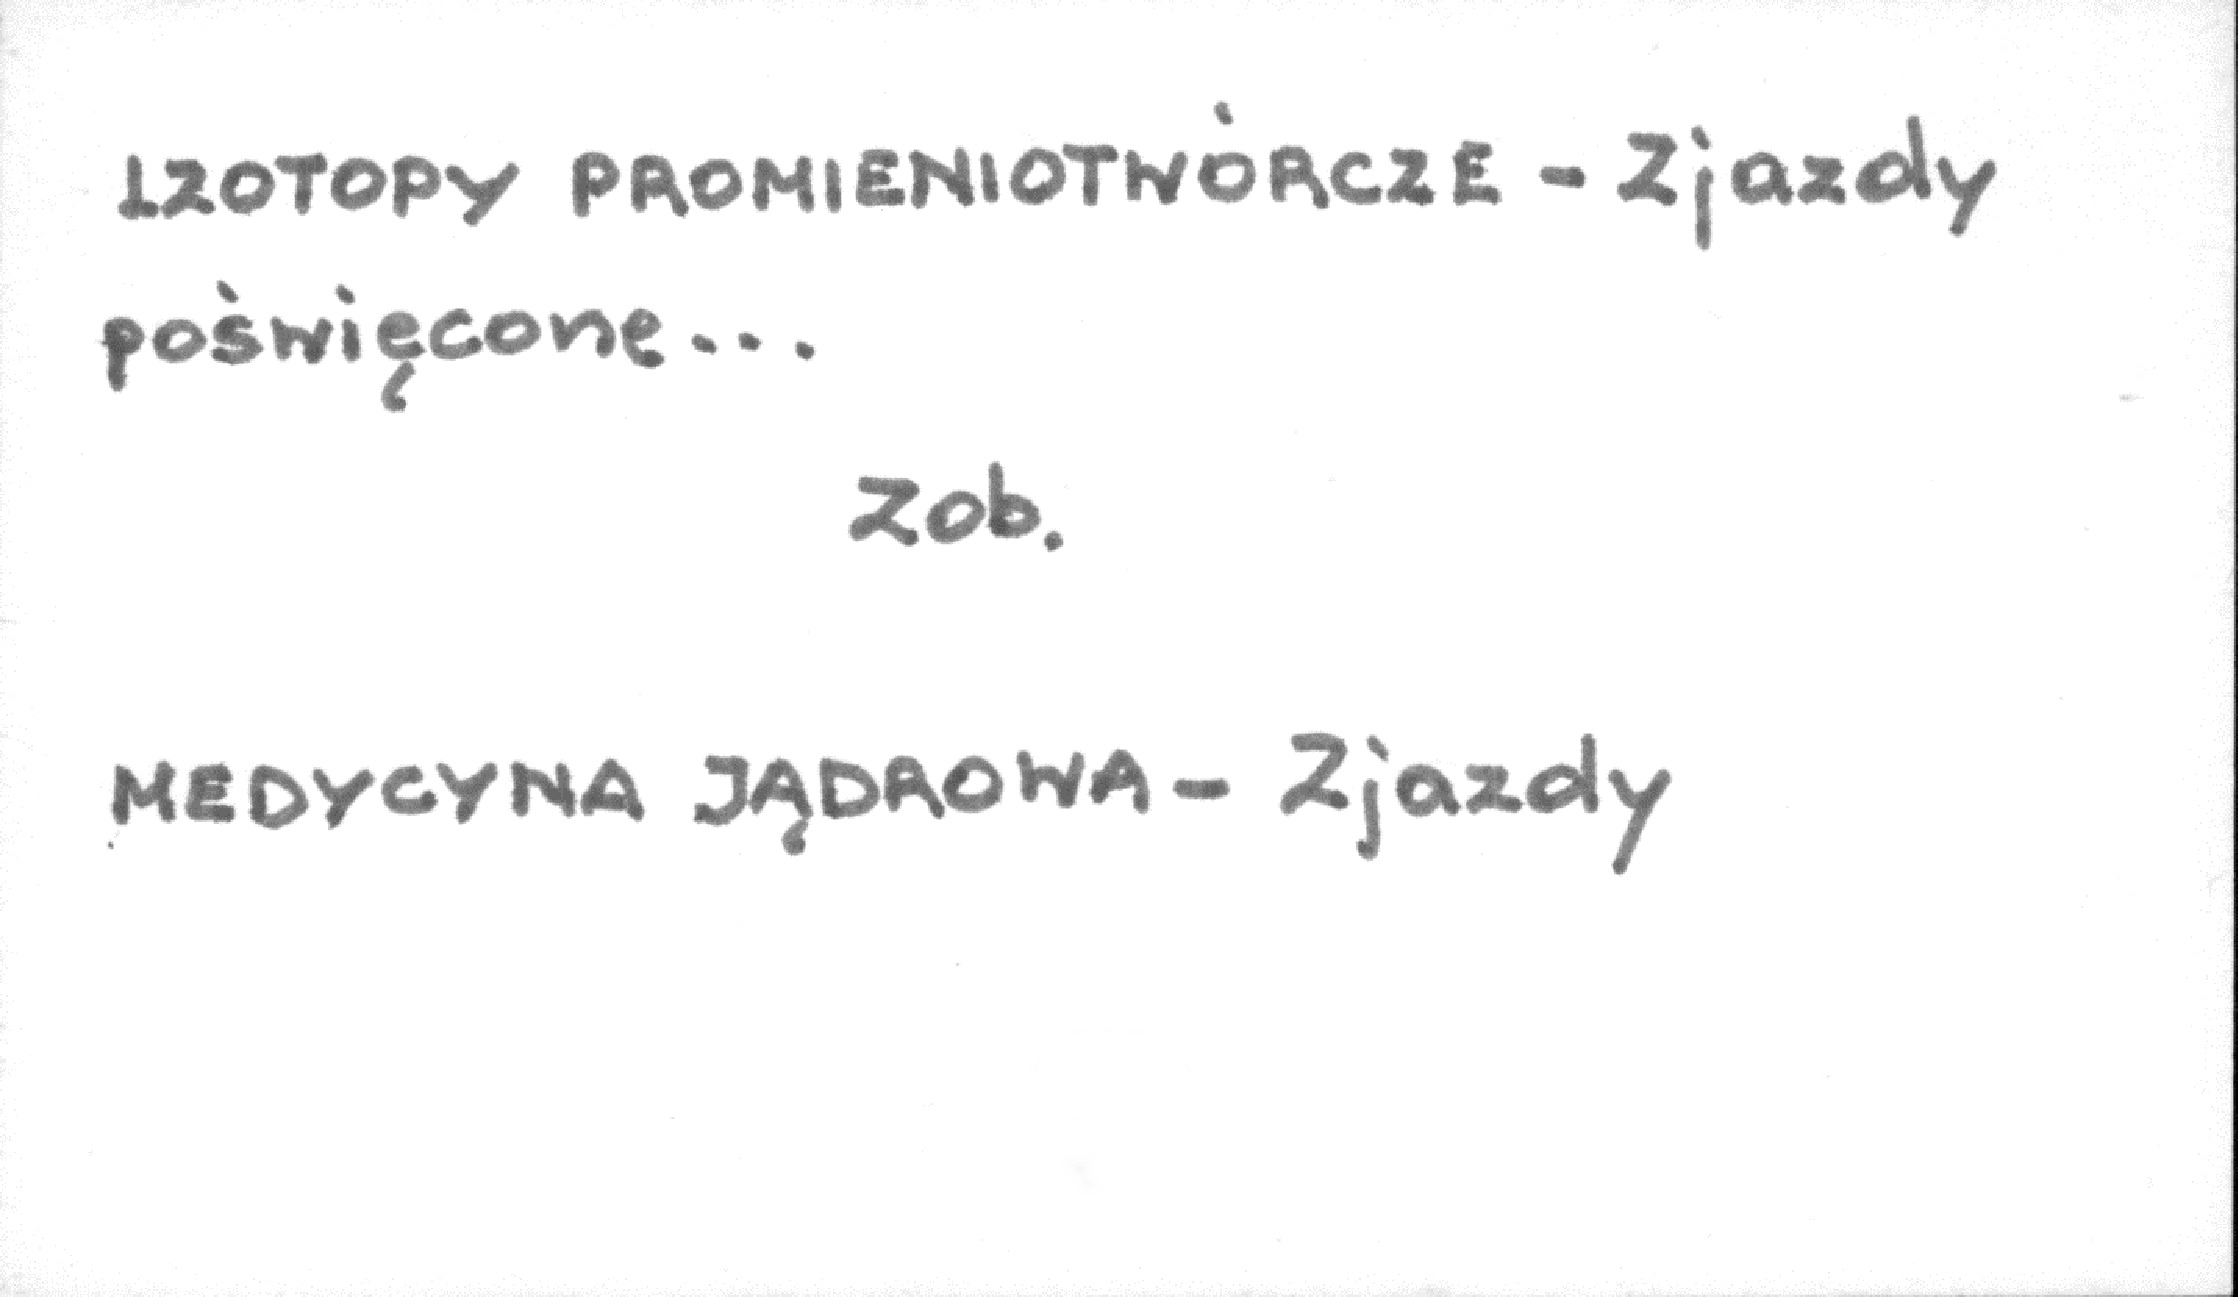 IZOTOPY PROMIENIOTWÓRCZE - Zjazdy
poświęcone...
Zob.
MEDYCYNA JĄDROWA - Zjazdy